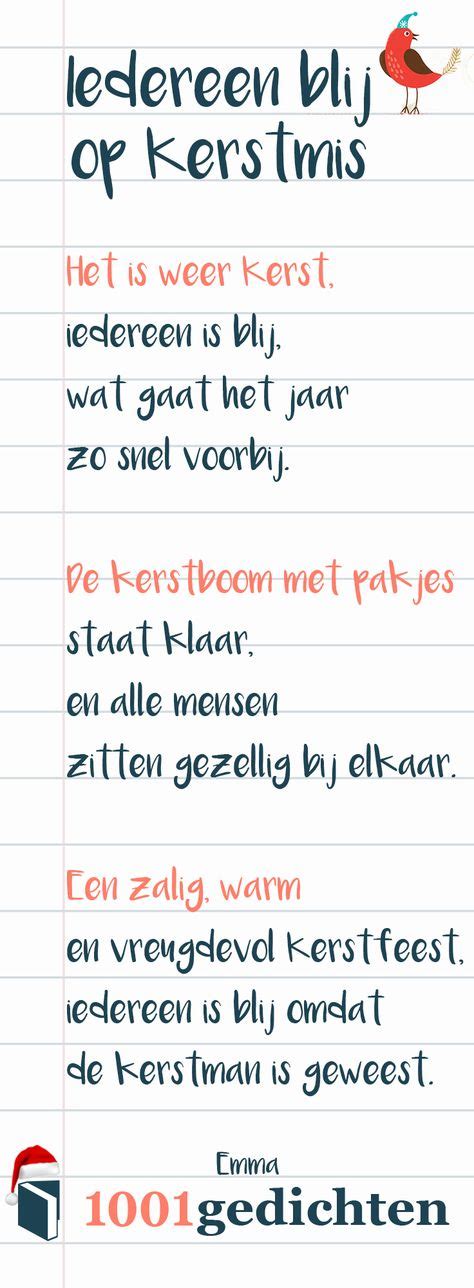 Iedereen blij
op kerstmis
Het is weer kerst,
iedereen is blij,
wat gaat het jaar
zo snel voorbij.
De kerstboom met pakjes
staat klaar,
en alle mensen
zitten gezellig bij elkaar.
Een zalig, warm
en vreugdevol kerstfeest,
iedereen is blij omdat
de kerstman is geweest.
Emma
1001gedichten